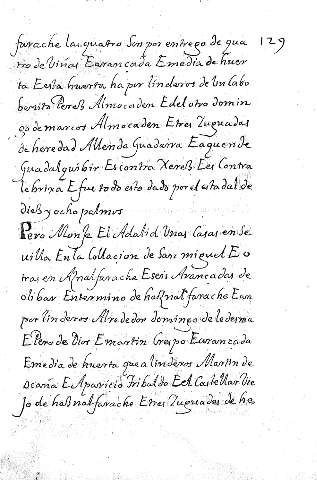 farache las quatro son por entrego de qua 129
tro de Viñas E arançada E media de huer
ta E esta huerta ha por linderos de Un Cabo
benita Peres Almocaden E del otro domin
go de marcos Almocaden E tres Zugadas
de heredad Allenda Guadarra E aquende
Guadalquibir. Es contra Xeres. E es Contra
lebrixa E fue todo esto dado por el estadal de
dies y ocho palmos
Pero Alonso El Adalid Unas Casas en Se
villa En la Collacion de San miguel E o
tras en Aznalfarache E seis Arançadas de
olibar En termino de haznalfarache E an
por linderos Alrededor domingo de ledesma
E Pero de Dios E martin Crespo E aranzada
E media de huerta que a linderos Martin de
ocaña E Aparicio Tribaldo E el Castellar Vie
Jo de haznalfarache E tres Zugadas de he